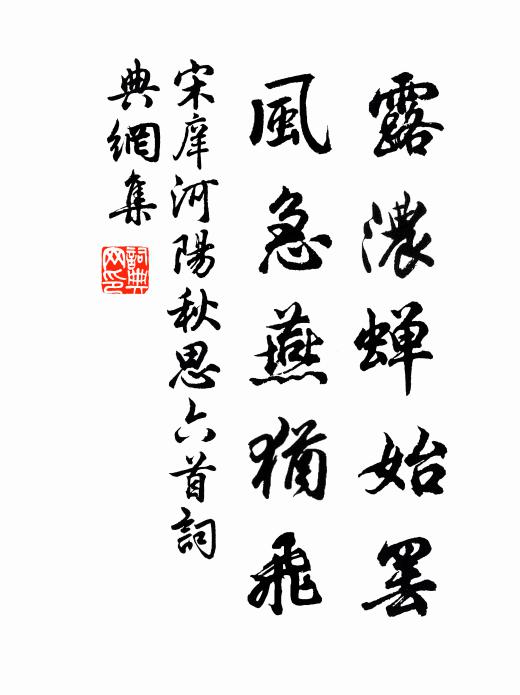 露濃蝉始罢
風急燕猶飛
宋庠河陽秋思六首詞
典網集
詞典网印